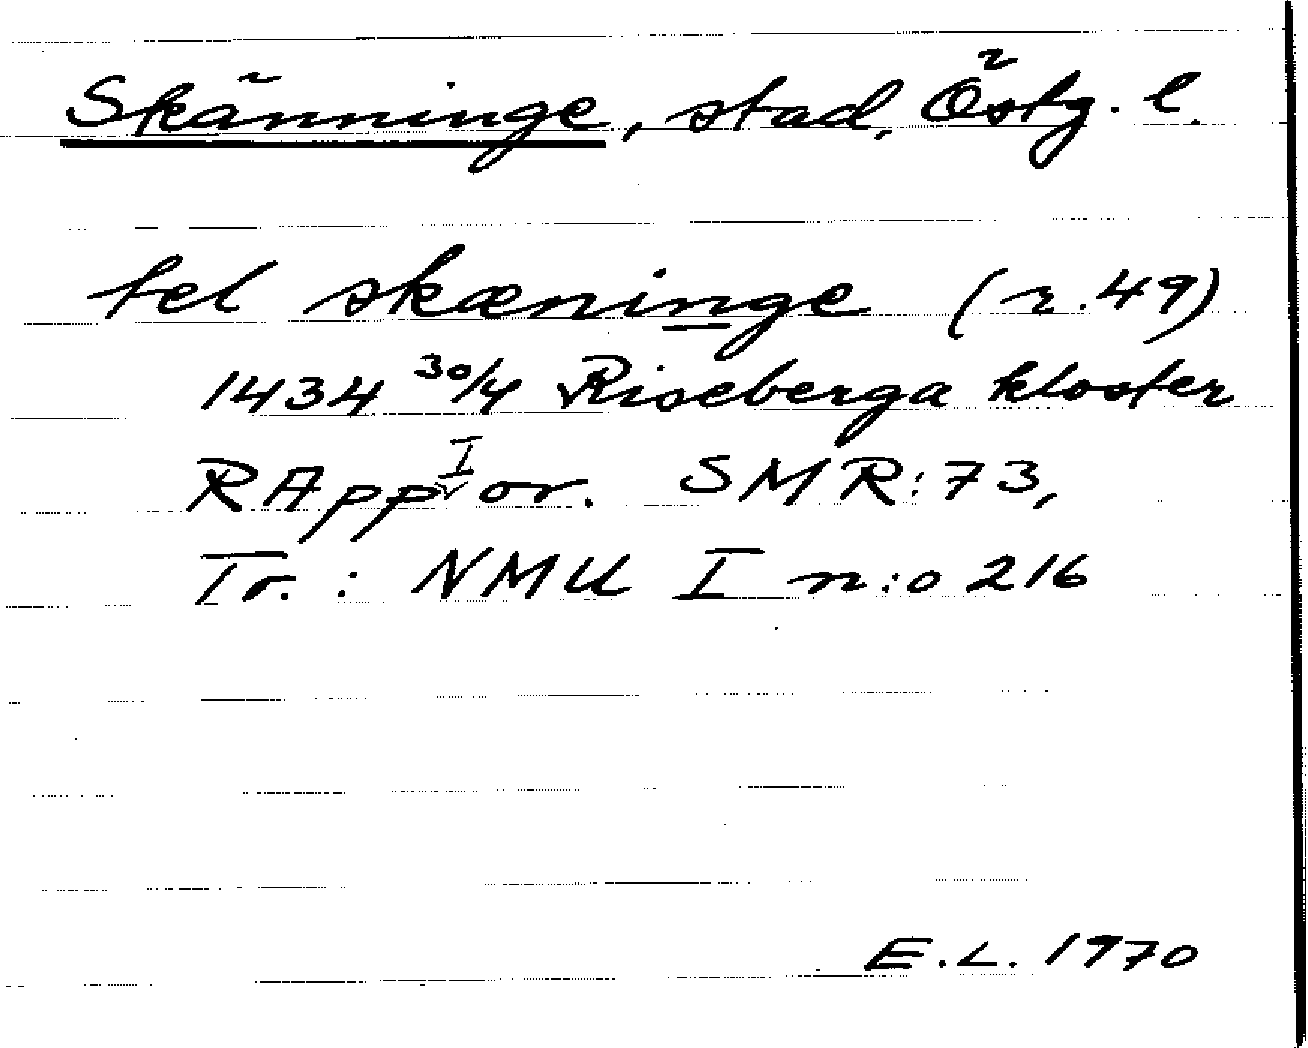 Skänninge, stad, Östg. l.
tel skæninge (r. 49)
1434 30/4 Riseberga kloster
RApp I or. SMR: 73,
Tr. : NMU I n:o 216
E.L. 1970